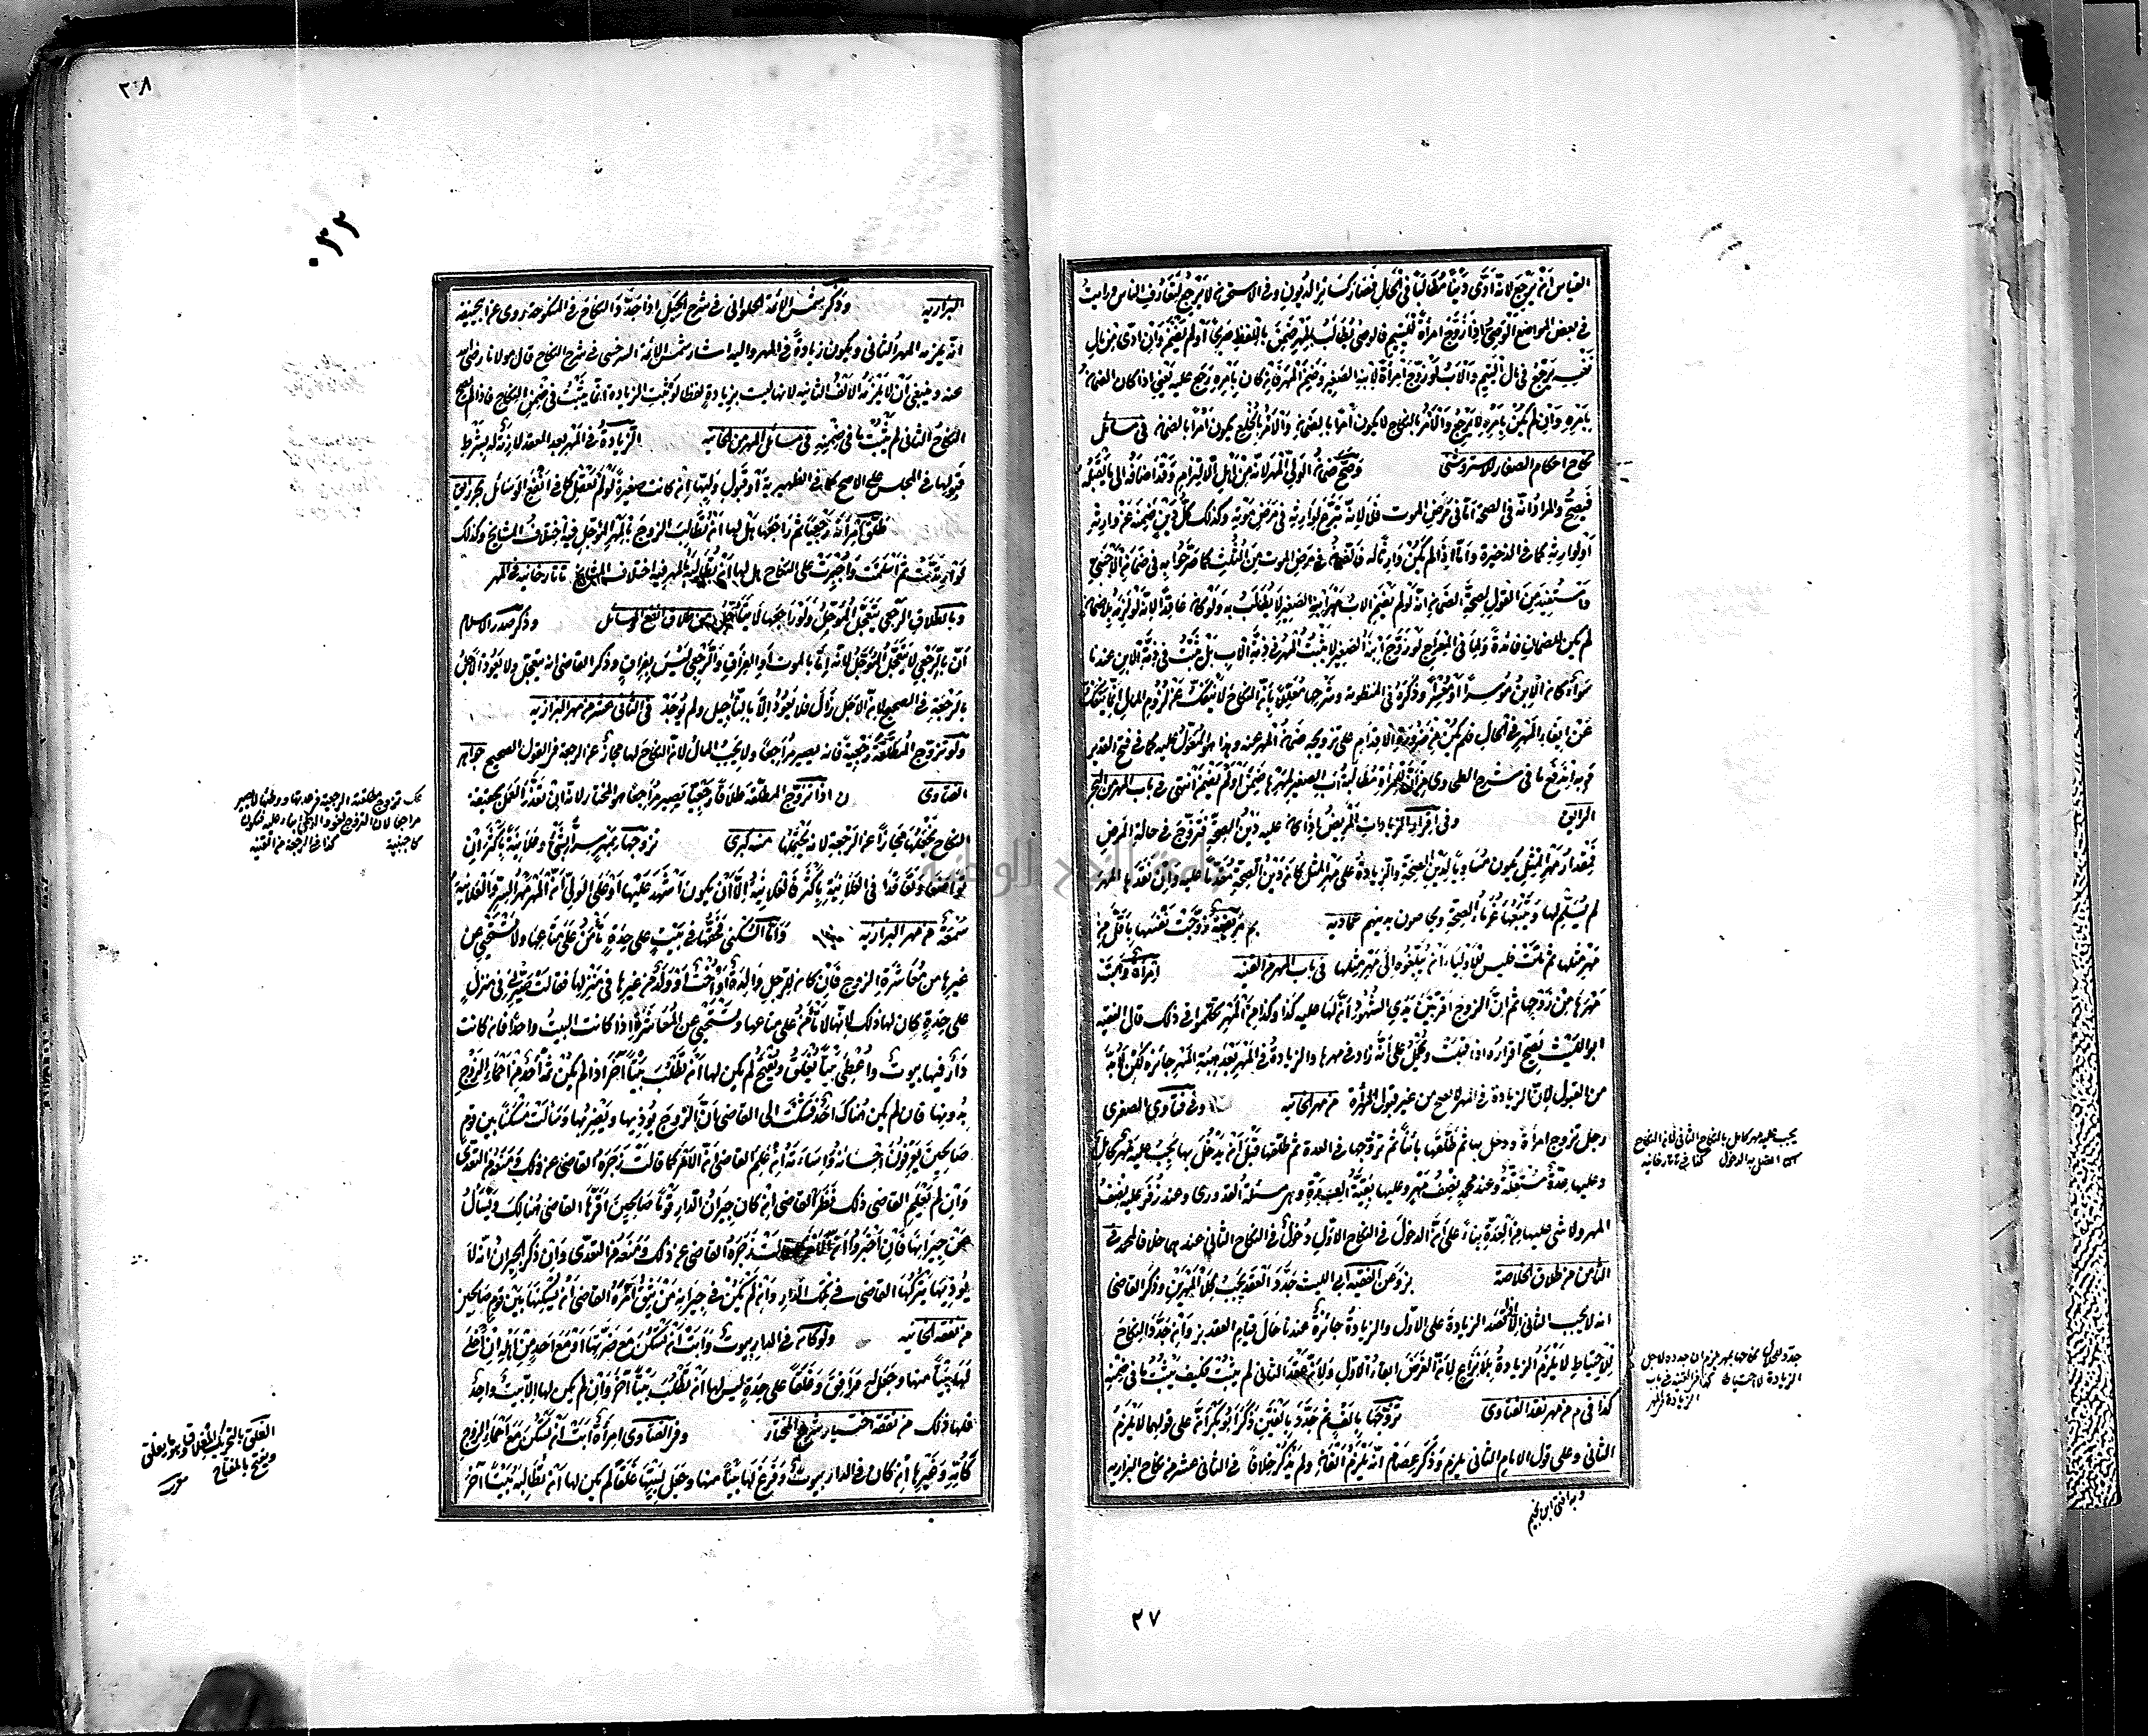 القياس ان يرجع لانه ادى دينا مطالبا في الحال فصار كسائر الديون وفي الاستحسان لا يرجع لتعارف الناس ورايت
في بعض المواضع الوصي اذا زوج امراة لليتيم فالوصي يطالب بالمهر ضمن باللفظ صريحا او لم يضمن وان ادى من مال
نفسه يرجع في مال اليتيم والاب لو زوج امراة لابنه الصغير وضمن المهر فان كان بامره رجع عليه يعني اذا كان الضمان
بامره وان لم يكن بامره لا يرجع والامر بالنكاح لا يكون امرا بالضمان والامر بالخلع يكون امرا بالضمان في مسائل
نكاح احكام الصغار للاستروشني وصح ضمان الولي المهر لانه من اهل الالتزام وقد اضافه الى ما يقبله
فيصح والمراد انه في الصحة اما في مرض الموت فلا لانه تبرع لوارثه في مرض موته وكذلك كل دين ضمنه عن وارثه
او لوارثه كما في الذخيرة واما اذا لم يكن وارثا له فالضمان في مرض الموت من الثلث كما صرحوا به في ضمان الاجنبي
واستفيد من القول لصحة الضمان انه لو لم يضمن الاب مهر ابنه الصغير لا يطالب به ولو كان عاقدا لانه لو لزمه بلا ضمان
لم يكن للضمان فائدة ولما في المعراج لو زوج ابنه الصغير لا يثبت المهر في ذمة الاب بل يثبت في ذمة الابن عندنا
سواء كان الابن موسرا او معسرا وذكره في المنظومة وشرحها معللا بان النكاح لا ينفك عن لزوم المال انما ينفك
عن ايفاء المهر في الحال فلم يكن من ضرورة الاقدام على تزويجه ضمان المهر عنه وهذا هو المعول عليه كما في فتح القدير
وبه اندفع ما في شرح الطحاوي من ان للمراة مطالبة اب الصغير بمهرها ضمن او لم يضمن انتهى في باب المهر من البحر
الرائق وفي اقرار الزيادات المريض اذا كان عليه دين الصحة فتزوج في حالة المرض
فمقدار مهر المثل يكون مساويا لدين الصحة والزيادة على مهر المثل كان دين الصحة مقدما عليه وان نقدها المهر
لم يسلم لها ويتبعها غرماء الصحة ويحاصون بدينهم عمادية بم مريضة زوجت نفسها باقل من
مهر مثلها ثم ماتت فليس للاولياء ان يبلغوه الى مهر مثلها في باب المهر من القنية امراة وهبت
مهرها من زوجها ثم ان الزوج اقر بين يدي الشهود ان لها عليه كذا وكذا من المهر تكلموا في ذلك قال الفقيه
ابو الليث يصح اقراره اذا قبلت ويحمل على انه زاد في مهرها والزيادة في المهر بعد هبة المهر جائزة لكن لا بد
من القبول لان الزيادة في المهر لا تصح من غير قبول المراة من مهر الخانيه وفي فتاوى الصغرى
رجل تزوج امراة ودخل بها ثم طلقها بائنا ثم تزوجها في العدة ثم طلقها قبل ان يدخل بها يجب عليه مهر كامل
وعليها عدة مستقلة وعند محمد نصف مهر وعليها بقية العدة وهي مسئلة القدوري وعند زفر عليه نصف
المهر ولا شي عليها من العدة بناء على ان الدخول في النكاح الاول دخول في النكاح الثاني عندهما خلافا لمحمد في
الثامن من طلاق الخلاصة بز وعن الفقيه ابي الليث جدد العقد يجب كلا المهرين وذكر القاضي
انه لا يجب الثاني الا اذا قصد الزيادة على الاول والزيادة جائزة عندنا حال قيام العقد بز وان جدد النكاح
للاحتياط لا يلزم الزيادة بلا نزاع لان الغرض العقد الاول ولان العقد الثاني لم يثبت فكيف يثبت ما في ضمنه
كذا في م من مهر نقد الفتاوى تزوجها بالف ثم جدد بالفين ذكر ابو بكر انه على قولهما لا يلزم
الثاني وعلى قول الامام الثاني يلزم وذكر عصام انه يلزم الفان ولم يذكر خلافا في الثاني عشر من نكاح البزازيه
وبه افتى ابن نجيم
يجب عليه مهر كامل بالنكاح الثاني لان النكاح
اتصل به الدخول كذا في تاتارخانيه
جدد للحلال نكاحا بمهر يلزم ان جدده لاجل
الزيادة لا احتياطا كذا في القنية في باب
الزيادة في المهر
٢٧
٢٠٨
٠٣٢
البزازيه وذكر شمس الائمة الحلواني في شرح الحيل اذا جدد النكاح في المنكوحة روي عن ابي حنيفة
انه يلزمه المهر الثاني ويكون زيادة في المهر واليه اشار شمس الائمة السرخسي في شرح النكاح قال مولانا رضي الله
عنه وينبغي ان لا يلزمه الالف الثانية لانها ليست بزيادة لفظا لو ثبتت الزيادة انما يثبت في ضمن النكاح فاذا لم يصح
النكاح الثاني لم يثبت ما في ضمنه في مسائل المهر من الخانيه الزيادة في المهر بعد العقد لازمة له بشرط
قبولها في المجلس على الاصح كما في الظهيرية او قبول وليها ان كانت صغيرة لو لم تعقل كما في انفع الوسائل بحر رائق
طلق امراته رجعيا ثم راجعها هل لها ان تطالب الزوج بالمهر المؤجل فيه اختلاف المشايخ وكذلك
لو ارتدت ثم اسلمت واجبرت على النكاح هل لها ان تطالبه بالمهر فيه اختلاف المشايخ تاتارخانيه في المهر
وبالطلاق الرجعي يتعجل المؤجل ولو راجعها لا يتاجل من طلاق انفع الوسائل وذكر صدر الاسلام
ان بالرجعي لا يتعجل المؤجل لانه اما بالموت او بالفراق والرجعي ليس بفراق وذكر القاضي انه يتعجل ولا يعود الاجل
بالرجعة في الصحيح لان الاجل زال فلا يعود الا بالتاجيل ولم يوجد في الثاني عشر من مهر البزازيه
ولو تزوج المطلقة رجعية فانه يصير مراجعا ولا يجب المال لان النكاح لها مجاز عن الرجعة في القول الصحيح جواهر
الفتاوى ن اذا تزوج المطلقة طلاقا رجعيا يصير مراجعا هو المختار لانه ان تعذر العمل بحقيقة
النكاح يجعلها مجازا عن الرجعة لانه يحتملها منيه كبرى تزوجها بمهر سرا بشي وعلانية باكثر ان
تواضعا وتعاقدا في العلانية باكثر فالعلانية الا ان يكون اشهد عليها او على الولي ان المهر مهر السر والعلانية
سمعة من مهر البزازيه واما السكنى فحقها في بيت على حدة تامن على متاعها ولا تستحي من
غيرها من معاشرة الزوج فان كان للرجل والدة او اخت او ولد من غيرها في منزلها فقالت صيرني في منزل
على حدة كان لها ذلك لانها لا تامن على متاعها وتستحي عن المعاشرة اذا كانت البيت واحدا فان كانت
دار فيها بيوت واعطى بيتا يغلق ويفتح لم يكن لها ان تطلب بيتا آخر اذا لم يكن ثمة احد من احماء الزوج
يؤذيها فان لم يكن هناك احد فشكت الى القاضي بان الزوج يؤذيها ويضربها وسالت مسكنا بين قوم
صالحين يعرفون احسانه واساءته ان علم القاضي ان الامر كما قالت زجره القاضي عن ذلك ويمنعه من التعدي
وان لم يعلم القاضي ذلك نظر القاضي ان كان جيران الدار قوما صالحين اقرها القاضي هنالك ويسال
عن جيرانها فان اخبروا ان الامر كما قالت زجره القاضي عن ذلك ومنعه من التعدي وان ذكر الجيران انه لا
يؤذيها يتركها القاضي في تلك الدار وان لم يكن في جيرانه من يثق امره القاضي ان يسكنها بين قوم صالحين
من نفقة الخانيه ولو كان في الدار بيوت وابت ان تسكن مع ضرتها او مع احد من اهله ان اخلى
لها بيتا منها وجعل له مرافق وغلقا على حدة ليس لها ان تطلب بيتا آخر وان لم يكن لها الا بيت واحد
فلها ذلك من نفقة اختيار شرح المختار وفي الفتاوى امراة ابت ان تسكن مع احماء الزوج
كامه وغيرها ان كان في الدار بيوت وفرغ لها بيتا منها وجعل لبيتها غلقا لم يكن لها ان تطالبه بيتا آخر
تزوج مطلقته الرجعية في عدتها ووطئها لا يصير
مراجعا لان التزوج لغو والوطئ بناء عليه فيكون
كاجنبية كذا في الرجعة من القنية
الغلق بالتحريك المغلاق وهو ما يغلق
ويفتح بالمفتاح